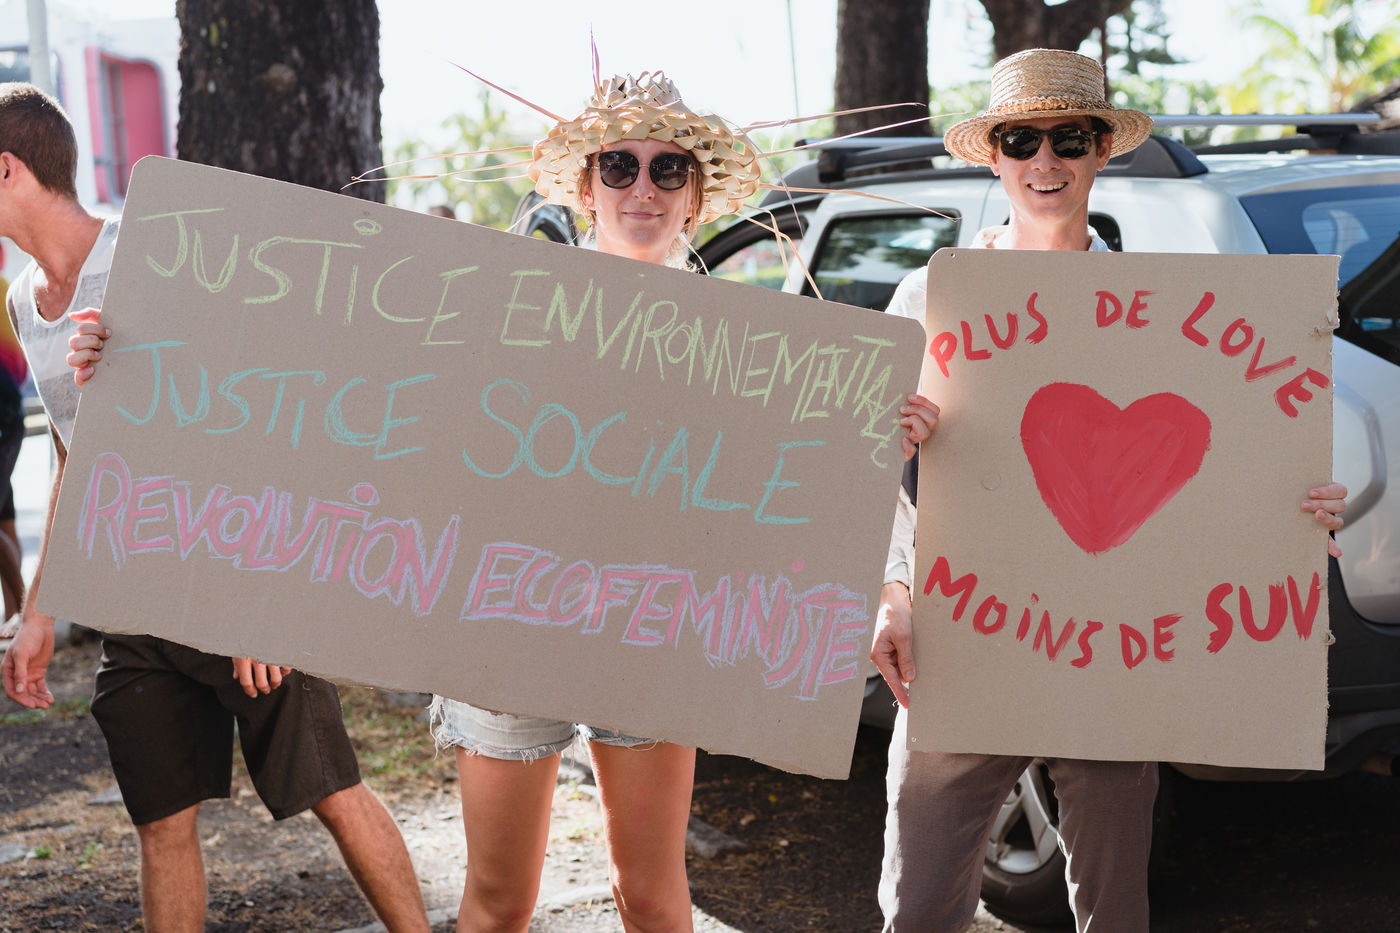 JUSTICE ENVIRONNEMENTALE
JUSTICE SOCIALE
REVOLUTION ECOFEMINISTE
PLUS DE LOVE
MOINS DE SUV